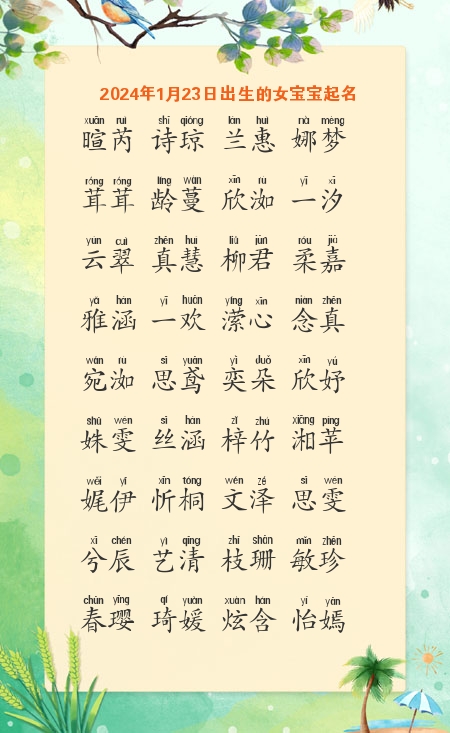 2024年1月23日出生的女宝宝起名
xuān ruì shī qióng lán huì nà mèng
暄芮 诗琼 兰惠 娜梦
róng róng líng wàn xīn rù yī xī
茸茸 龄蔓 欣洳 一汐
yún cuì zhēn huì liǔ jūn róu jiā
云翠 真慧 柳君 柔嘉
yǎ hán yī huān yíng xīn niàn zhēn
雅涵 一欢 潆心 念真
wǎn rù sī yuān yì duǒ xīn yú
宛洳 思鸢 奕朵 欣妤
shū wén sī hán zǐ zhú xiāng píng
姝雯 丝涵 梓竹 湘苹
wěi yī xīn tóng wén zé sī wén
娓伊 忻桐 文泽 思雯
xī chén yì qīng zhī shān mǐn zhēn
兮辰 艺清 枝珊 敏珍
chūn yīng qí yuán xuàn hán yí yān
春璎 琦媛 炫含 怡嫣